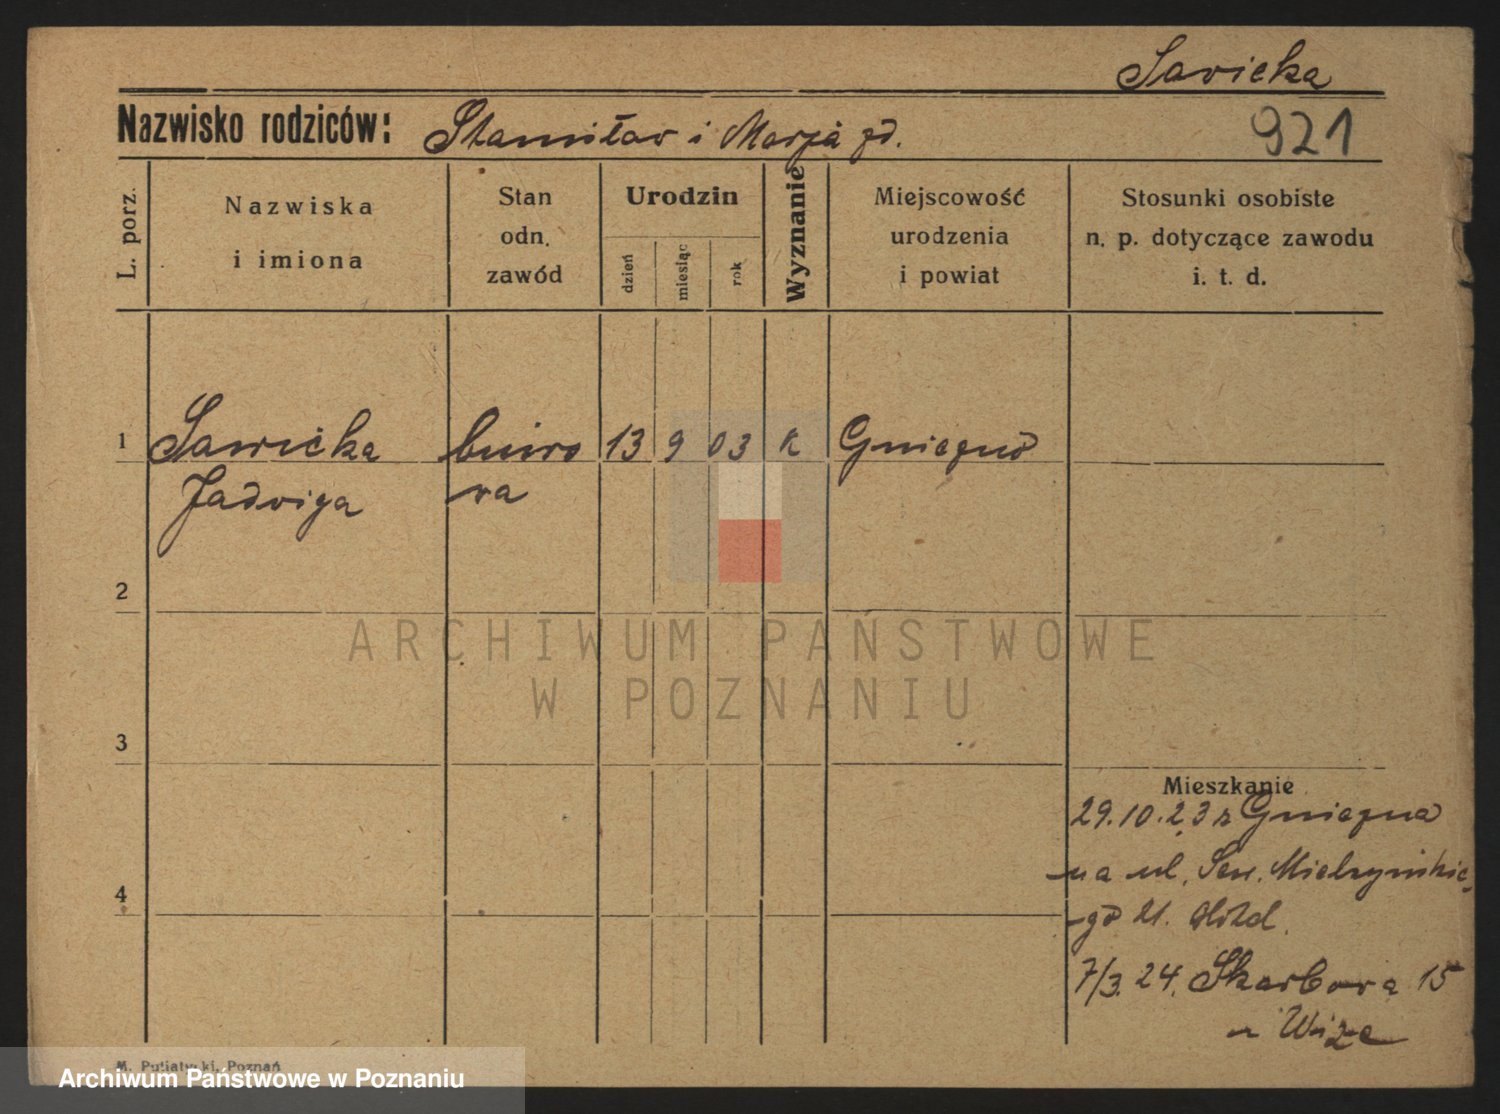 Sawicka
Nazwisko rodziców: Stanisław i Marja zd.
921
L. porz.
Nazwiska
i imiona
Stan
odn.
zawód
Urodzin
dzień
miesiąc
rok
Wyznanie
Miejscowość
urodzenia
i powiat
Stosunki osobiste
n. p. dotyczące zawodu
i. t. d.
1 Sawicka biuro 13 9 03 k Gniezno
Jadwiga wa
2
ARCHIWUM PAŃSTWOWE
W POZNANIU
3
Mieszkanie
29.10.23 z Gniezna
na ul. Sew. Mielżyńskie
4
go 21.
7/3.24. Skarbowa 15
M. Putiatycki, Poznań
Archiwum Państwowe w Poznaniu